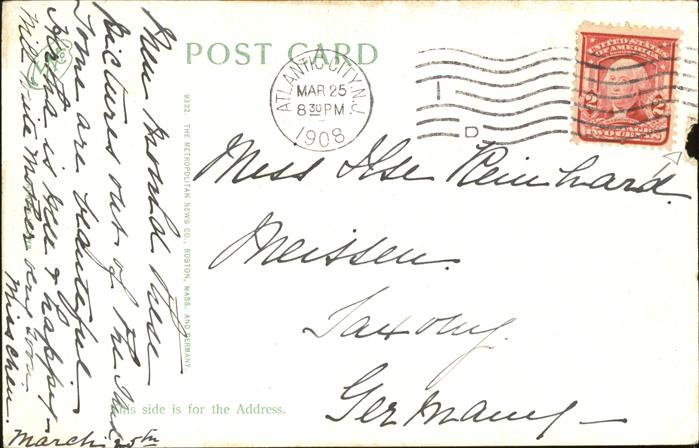 POST CARD
ATLANTIC CITY, N.J.
MAR 25
8 30 PM
1908
UNITED STATES
OF AMERICA
2 2
TWO CENTS
Miss Ilse Reinhard.
Meissen.
Saxony.
Germany
9332. THE METROPOLITAN NEWS CO., BOSTON, MASS. AND GERMANY.
This side is for the Address.
Men mould these
pictures out of the sand
Some are beautiful.
is well & happy.
Will write Mother very soon.
March 25th